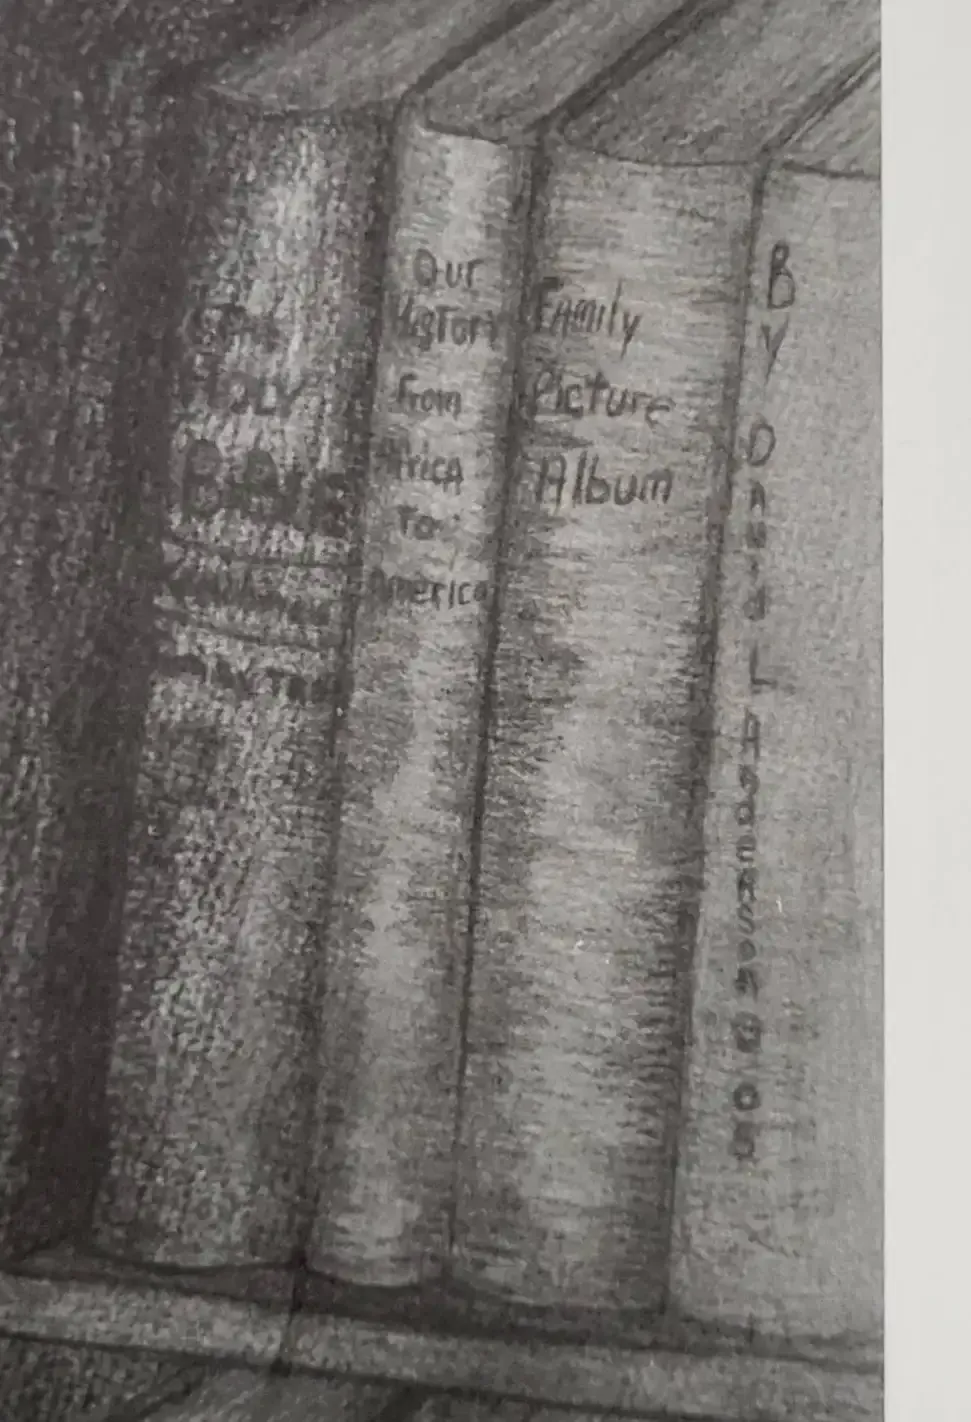 THE
HOLY
BiBLE
Our
History
from
Africa
To
America
Family
Picture
Album
By David L Anderson